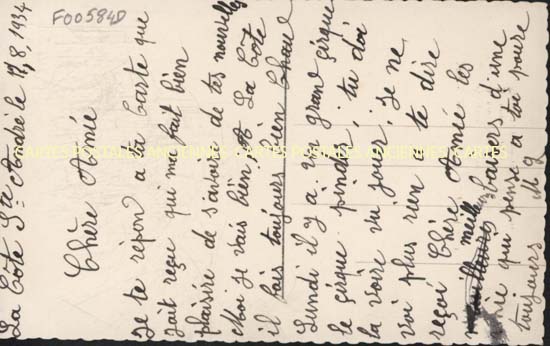 F00584D
La Côte St André le 17,8,1934
Chère Aimée
Je te répon a ta Carte que
j'ait reçue qui ma fait bien
plaisire de s'avoir de tes nouvelles
Moi je vais bien, A La Côte
il fais toujours bien Chaud
Lundi il y a y grand çirque
le çirque pinder, tu doi
la voire vu joui, Je ne
voi plus rien a te dire
reçoi Chère Aimée les
meill baisers d'une
qui pense a toi poure
toujours
CARTES POSTALES ANCIENNES CARTES POSTALES ANCIENNES CARTES